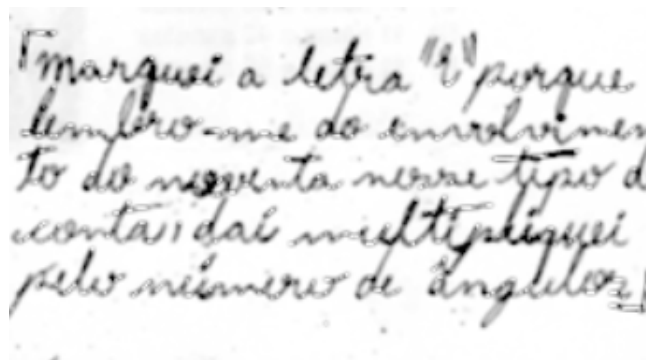 ⌈marquei a letra "E" porque
lembro-me do envolvimen
to do noventa nesse tipo d
conta, daí multipliquei
pelo número de ângulos⌋